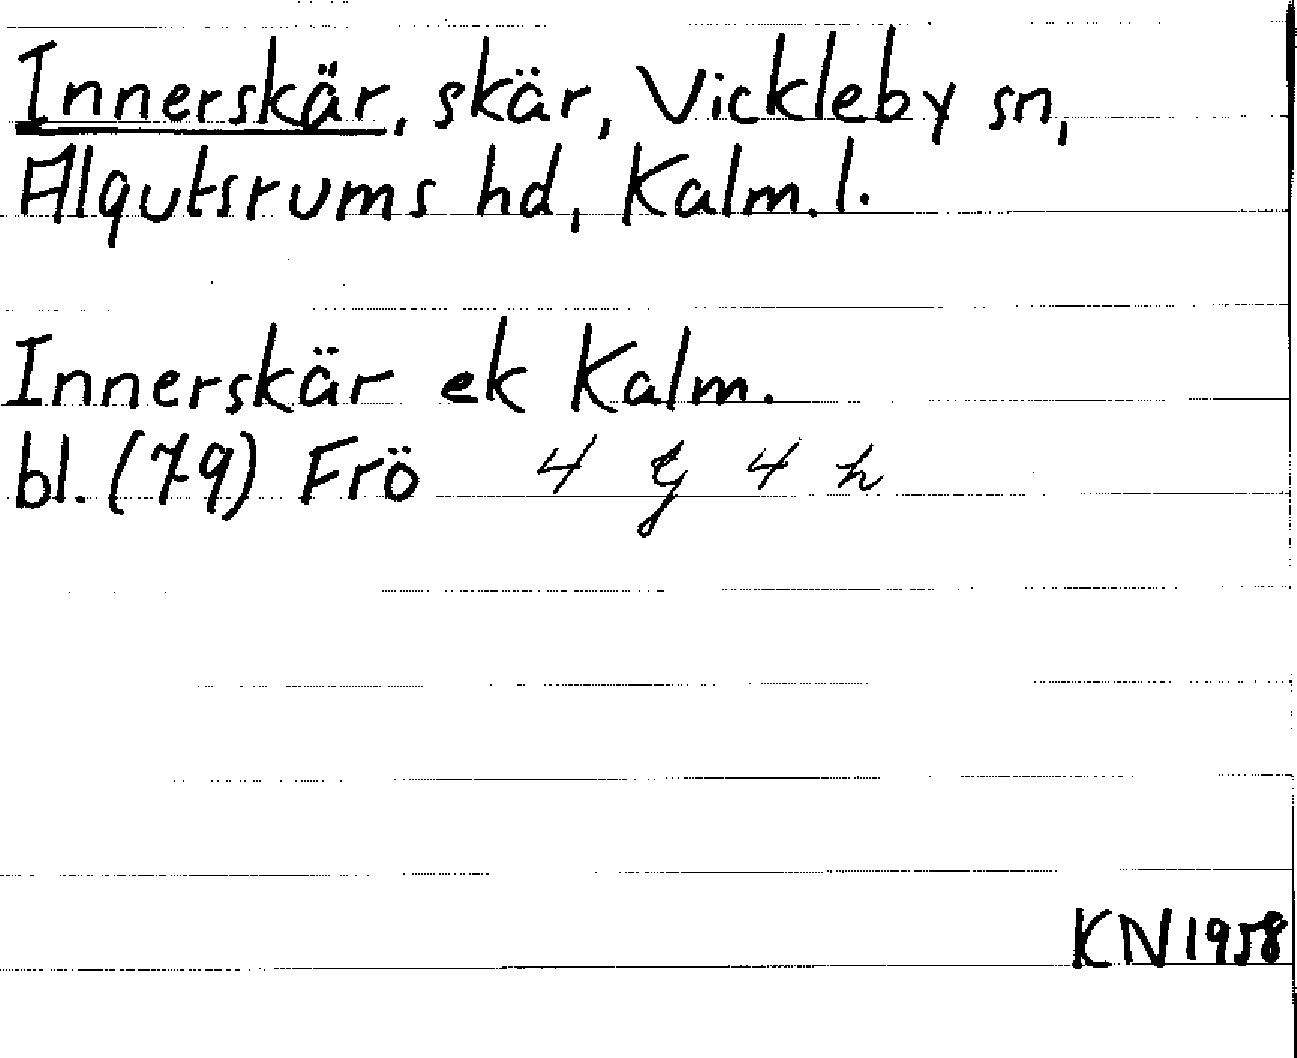 Innerskär, skär, Vickleby sn,
Algutsrums hd, Kalm. l.
Innerskär ek Kalm.
bl. (79) Frö 4 g 4 h
KN 1958